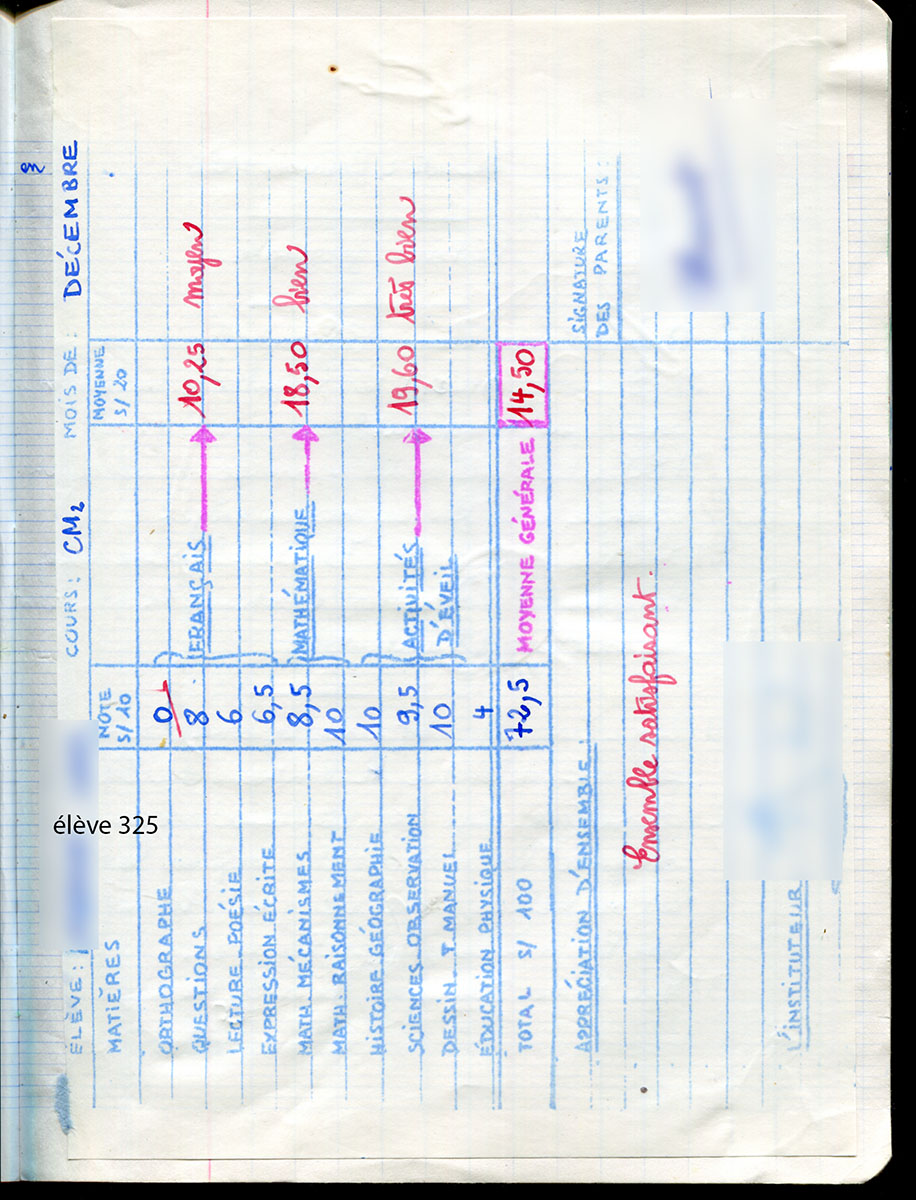 ELÈVE : élève 325 COURS : CM2 MOIS DE : DÉCEMBRE
MATIÈRES NOTE S/10 MOYENNE S/20
ORTHOGRAPHE 0
QUESTIONS 8 FRANÇAIS 10,25 moyen
LECTURE POÉSIE 6
EXPRESSION ÉCRITE 6,5
MATH. MÉCANISMES 8,5 MATHÉMATIQUE 18,50 bien
MATH. RAISONNEMENT 10
HISTOIRE GÉOGRAPHIE 10
SCIENCES OBSERVATION 9,5 ACTIVITÉS 19,60 très bien
DESSIN T. MANUEL 10 D'ÉVEIL
ÉDUCATION PHYSIQUE 4
TOTAL S/ 100 72,5 MOYENNE GÉNÉRALE 14,50
APPRÉCIATION D'ENSEMBLE : SIGNATURE
DES PARENTS :
Ensemble satisfaisant.
L'INSTITUTEUR